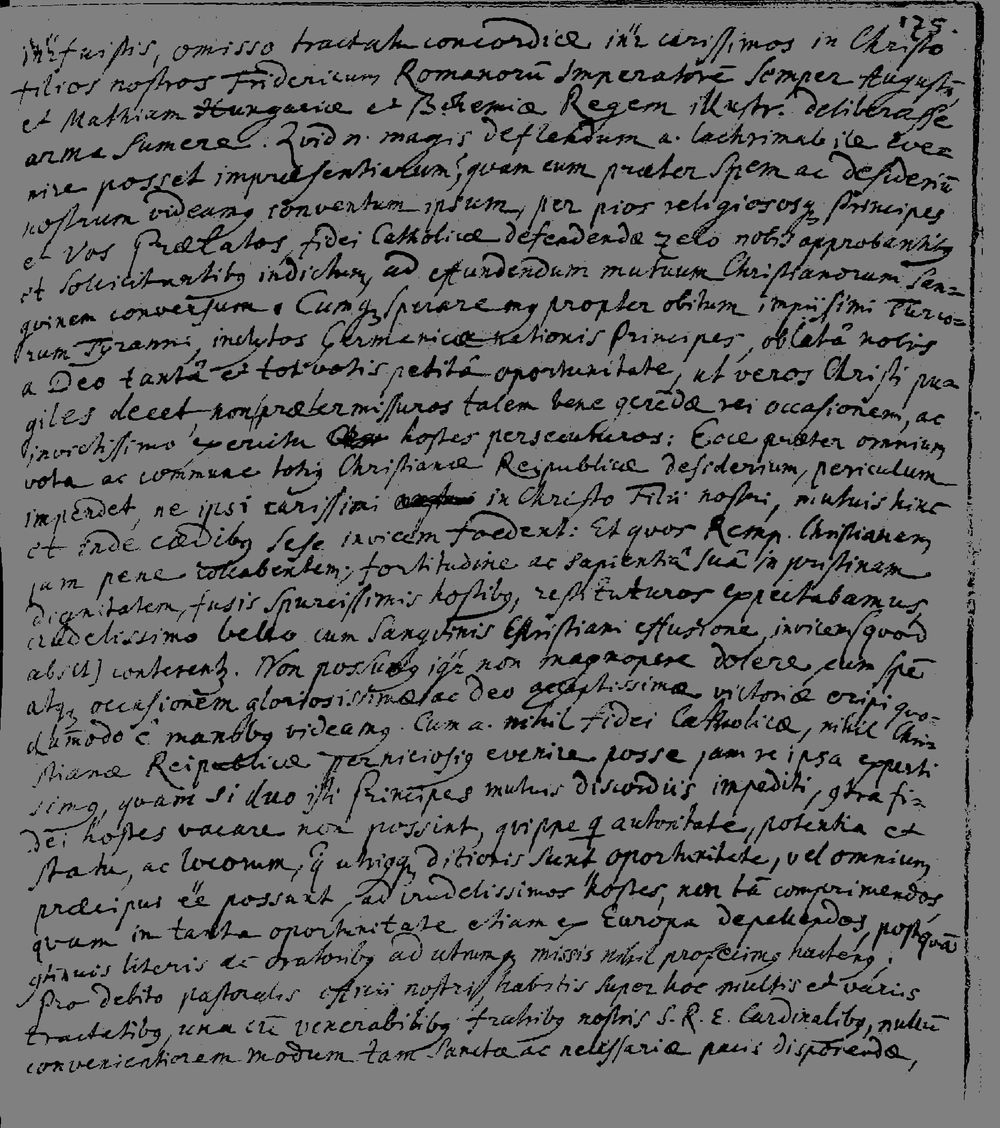 125.
infuistis, omisso tractatu concordiæ inr carissimos in Christo
filios nostros Fridericum Romanorū Imperatorē semper Augustū,
et Mathiam Hungariæ et Bohemiæ Regem illustr. deliberasse
arma sumere. Quid n. magis deflendum a. lachrimabile eve=
nire posset impræsentiarum, quam cum præter spem ac desideriū
nostrum videamg conventum ipsum, per pios religiososqz Principes
et Vos Prælatos, fidei Catholicæ defendendæ zelo nobis approbantibg
et solicitantibg indictum, ad effundendum mutuum Christianorum san=
guinem conversum. Cumqz speraremg propter obitum impiissimi Turco=
rum Tyranni, inclytos Germanicæ nationis Principes, oblatâ nobis
a Deo tantâ et tot votis petitâ oportunitate, ut veros Christi pu=
giles decet, non prætermissuros talem bene gerēdæ rei occasionem, ac
invictissimo exercitu hostes persecuturos: Ecce præter omnium
vota ac commune totig Christianæ Reipublicæ desiderium, periculum
impendet, ne ipsi carissimi in Christo Filii nostri, mutuis hinc
et inde cædibg sese invicem foedent: Et quos Remp. Christianam
jam pene collabentem, fortitudine ac sapientiâ suâ in pristinam
dignitatem, fusis spurcissimis hostibg, restituturos expectabamus,
crudelissimo bello cum sanguinis Christiani effusione, invicem (quod
absit) conterentz. Non possumg igr non magnopere dolere, cum spē
atqz occasionem gloriosissimæ ac Deo acceptissimæ victoriæ eripi quo=
dāmodo ē manibg videamg. Cum a. nihil fidei Catholicæ, nihil Chri=
stianæ Reipublicæ perniciosig evenire posse jam re ipsa experti
simg, quam si duo isti Principes mutuis discordiis impediti, gtra fi=
dei hostes vacare non possint, quippe q autoritate, potentia et
statu, ac locorum, q̄ utriqz ditionis sunt oportunitate, vel omnium
præcipui ēē possunt, ad crudelissimos hostes, non tā comprimendos
quam in tanta oportunitate etiam ex Europa depellendos, postquā
gtinuis literis ac oratoribg ad utrumqz missis nihil profecimg hacteng;
Pro debito pastoralis officii nostri, habitis super hoc multis et variis
tractatibg, una cū venerabilibg fratribg nostris S. R. E. Cardinalibg, nullū
convenientiorem modum tam sanctæ ac necessariæ pacis disponendæ,